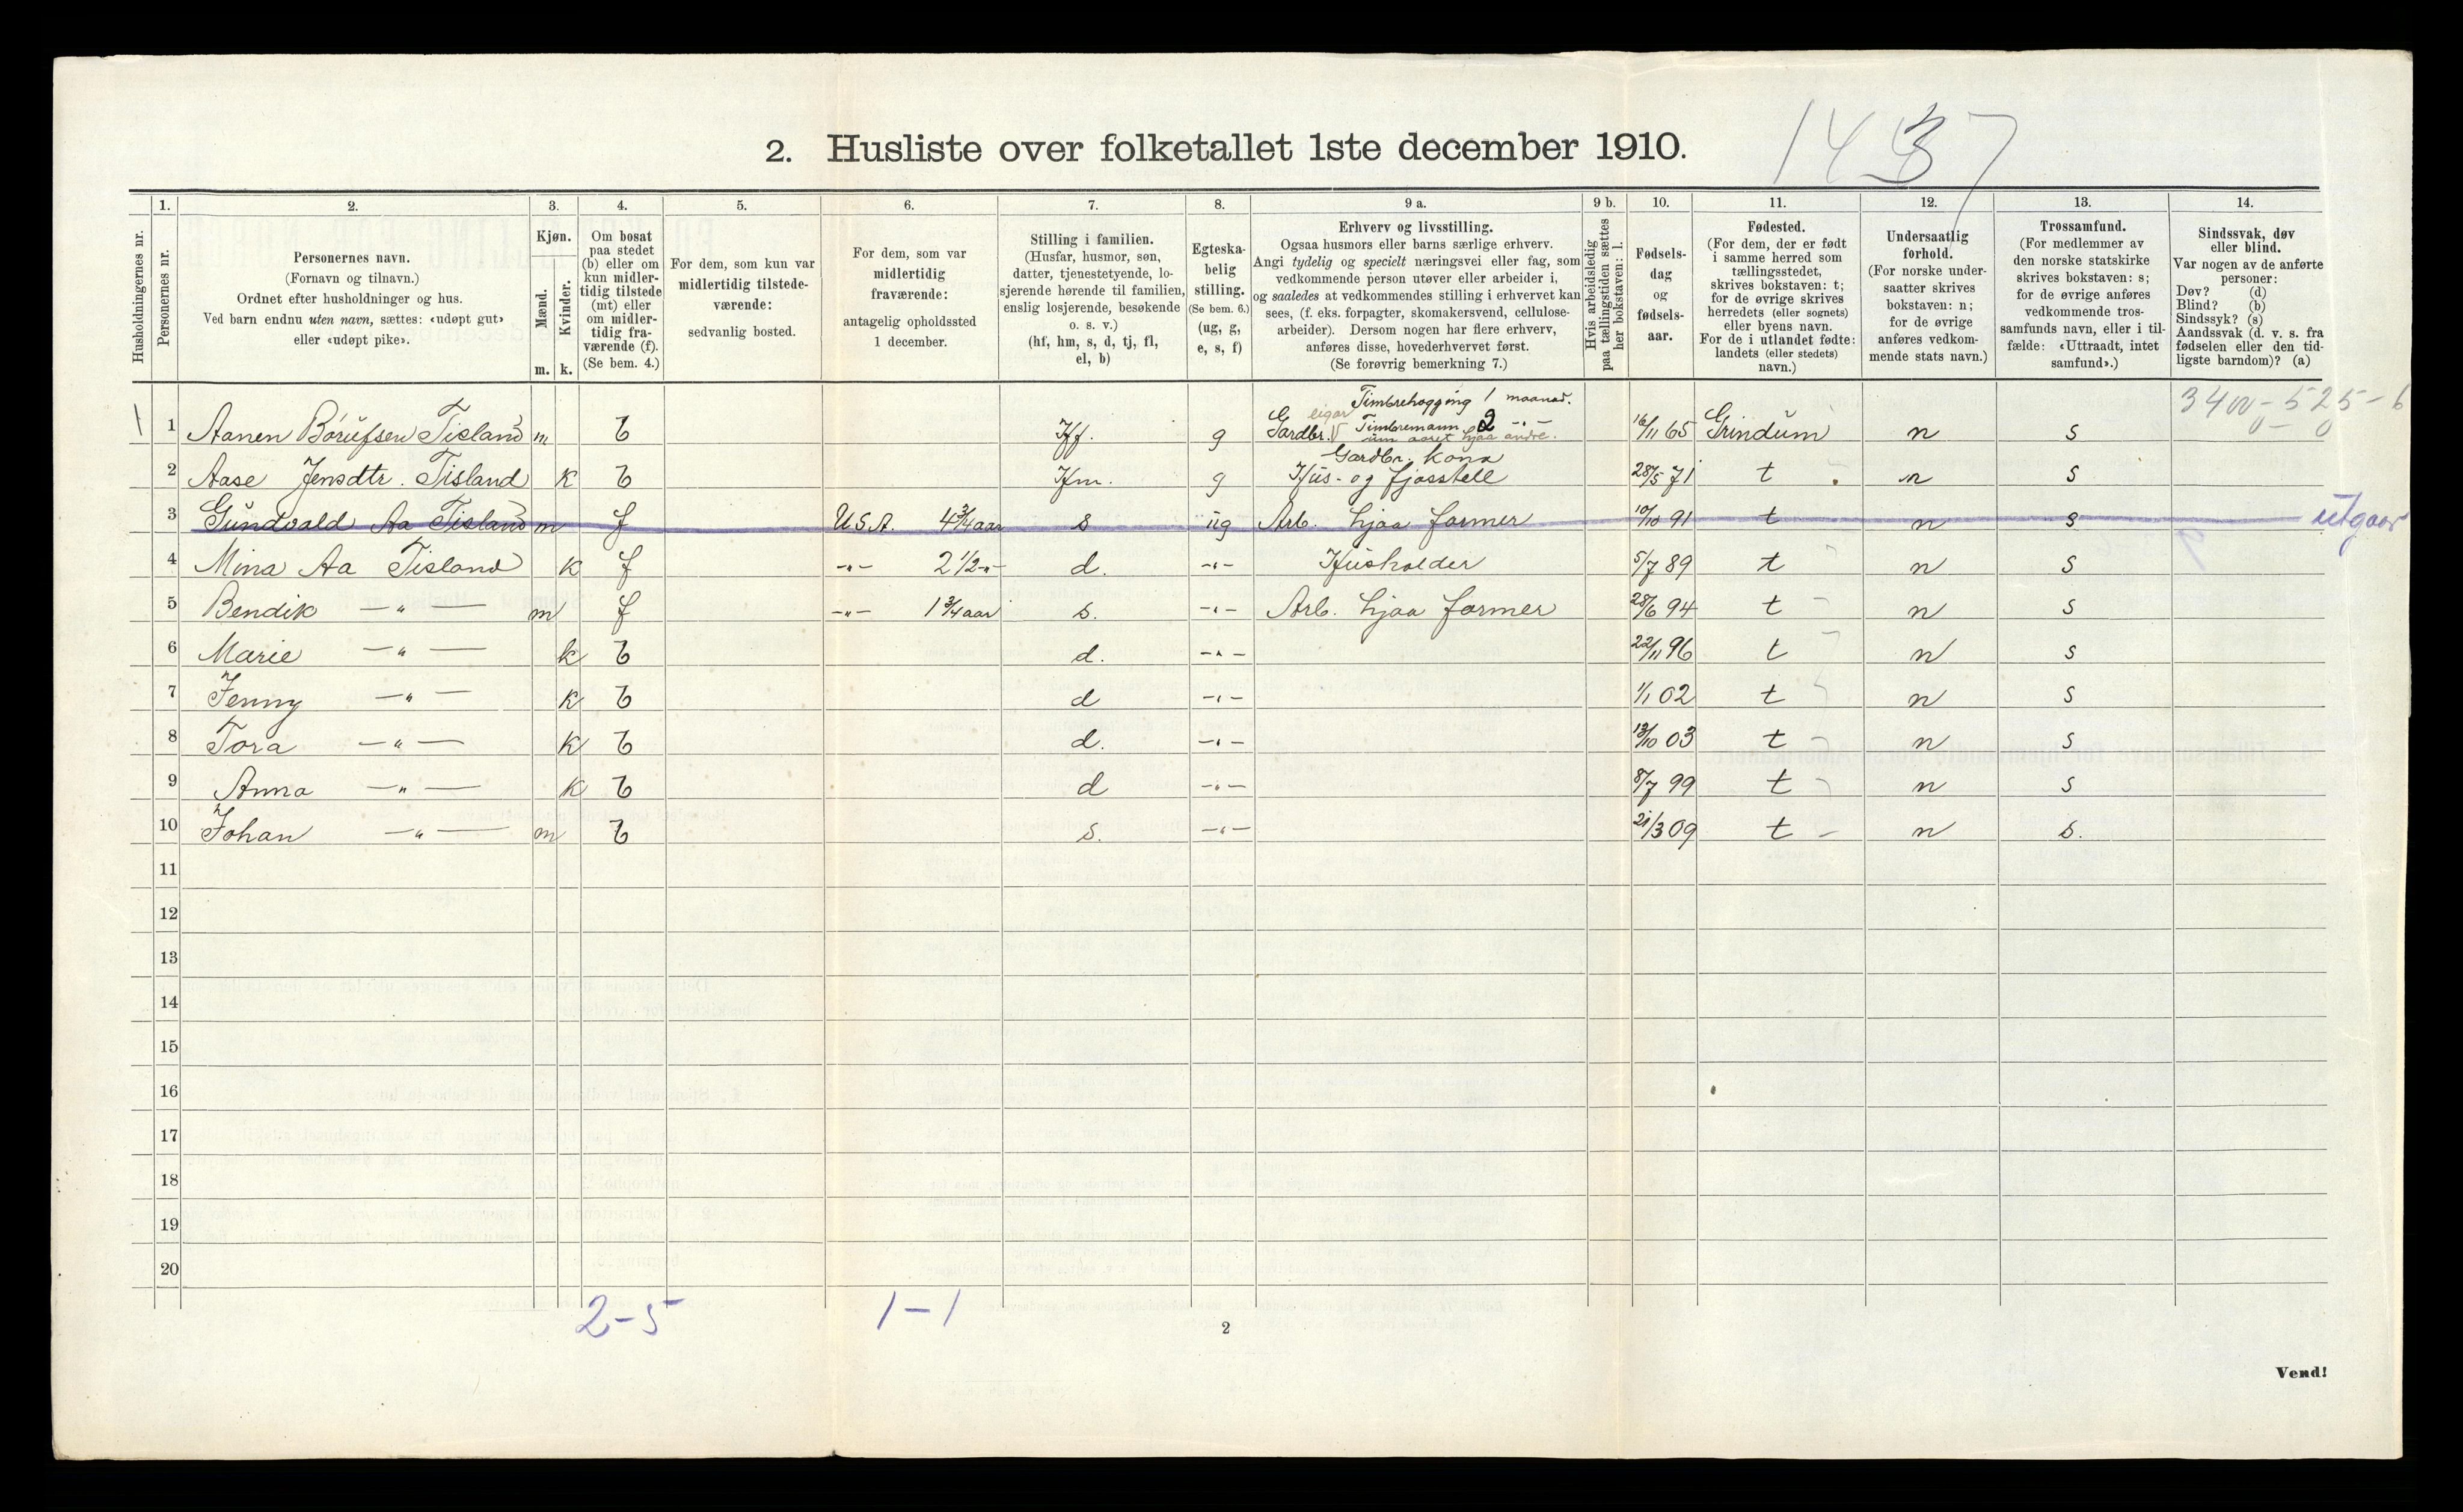 1437
2. Husliste over folketallet 1ste december 1910.
1. 2. 3. 4. 5. 6. 7. 8. 9 a. 9 b. 10. 11. 12. 13. 14.
Husholdningernes nr.
Personernes nr.
Personernes navn.
(Fornavn og tilnavn.)
Ordnet efter husholdninger og hus.
Ved barn endnu uten navn, sættes: «udøpt gut»
eller «udøpt pike».
Kjøn.
Mænd.
Kvinder.
m. k.
Om bosat
paa stedet
(b) eller om
kun midler-
tidig tilstede
(mt) eller
om midler-
tidig fra-
værende (f).
(Se bem. 4.)
For dem, som kun var
midlertidig tilstede-
værende:
sedvanlig bosted.
For dem, som var
midlertidig
fraværende:
antagelig opholdssted
1 december.
Stilling i familien.
(Husfar, husmor, søn,
datter, tjenestetyende, lo-
sjerende hørende til familien,
enslig losjerende, besøkende
o. s. v.)
(hf, hm, s, d, tj, fl,
el, b)
Egteska-
belig
stilling.
(Se bem. 6.)
(ug, g,
e, s, f)
Erhverv og livsstilling.
Ogsaa husmors eller barns særlige erhverv.
Angi tydelig og specielt næringsvei eller fag, som
vedkommende person utøver eller arbeider i,
og saaledes at vedkommendes stilling i erhvervet kan
sees, (f. eks. forpagter, skomakersvend, cellulose-
arbeider). Dersom nogen har flere erhverv,
anføres disse, hovederhvervet først.
(Se forøvrig bemerkning 7.)
Hvis arbeidsledig
paa tællingstiden sættes
her bokstaven: l.
Fødsels-
dag
og
fødsels-
aar.
Fødested.
(For dem, der er født
i samme herred som
tællingsstedet,
skrives bokstaven: t;
for de øvrige skrives
herredets (eller sognets)
eller byens navn.
For de i utlandet fødte:
landets (eller stedets)
navn.)
Undersaatlig
forhold.
(For norske under-
saatter skrives
bokstaven: n;
for de øvrige
anføres vedkom-
mende stats navn.)
Trossamfund.
(For medlemmer av
den norske statskirke
skrives bokstaven: s;
for de øvrige anføres
vedkommende tros-
samfunds navn, eller i til-
fælde: «Uttraadt, intet
samfund».)
Sindssvak, døv
eller blind.
Var nogen av de anførte
personer:
Døv? (d)
Blind? (b)
Sindssyk? (s)
Aandssvak (d. v. s. fra
fødselen eller den tid-
ligste barndom)? (a)
Timbrehogging 1 maanad.
1 Aanen Børufsen Tisland m b Hf. g Gardbr. eigar Timbremann 2 -"- 16/11 65 Grindum n s
Gardbr. Kona
2 Aase Jensdtr. Tisland k b Hm. g Hus- og fjosstell 28/5 71 t n s
3 Gundvald Aa Tisland m f U.S.A. 4 3/4 aar s ug Arb. hjaa farmer 10/10 91 t n s utgaar
4 Mina Aa Tisland k f -"- 2 1/2 -"- d. -"- Husholder 5/7 89 t n s
5 Bendik -"- m f -"- 1 3/4 aar s. -"- Arb. hjaa farmer 28/6 94 t n s
6 Marie -"- k b d. -"- 22/11 96 t n s
7 Jenny -"- k b d -"- 1/1 02 t n s
8 Tora -"- k b d. -"- 13/10 03 t n s
9 Anna -"- k b d -"- 8/7 99 t n s
10 Johan -"- m b s. -"- 21/3 09 t n s.
11
12
13
14
15
16
17
18
19
20
2-5 1-1
2
Vend!